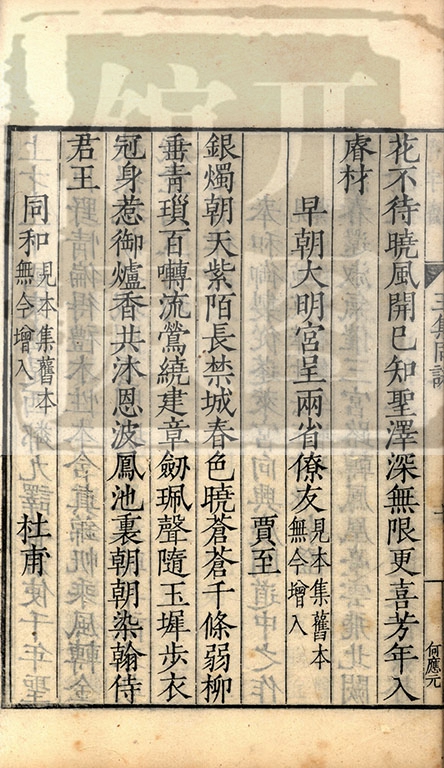 花不待曉風開已知聖澤深無限更喜芳年入
睿材
早朝大明宮呈兩省僚友見本集舊本無今增入
賈至
銀燭朝天紫陌長禁城春色曉蒼蒼千條弱柳
垂青瑣百囀流鶯繞建章劒珮聲隨玉墀步衣
冠身惹御爐香共沐恩波鳳池裏朝朝染翰侍
君王
同和見本集舊本無今增入 杜甫
何應元